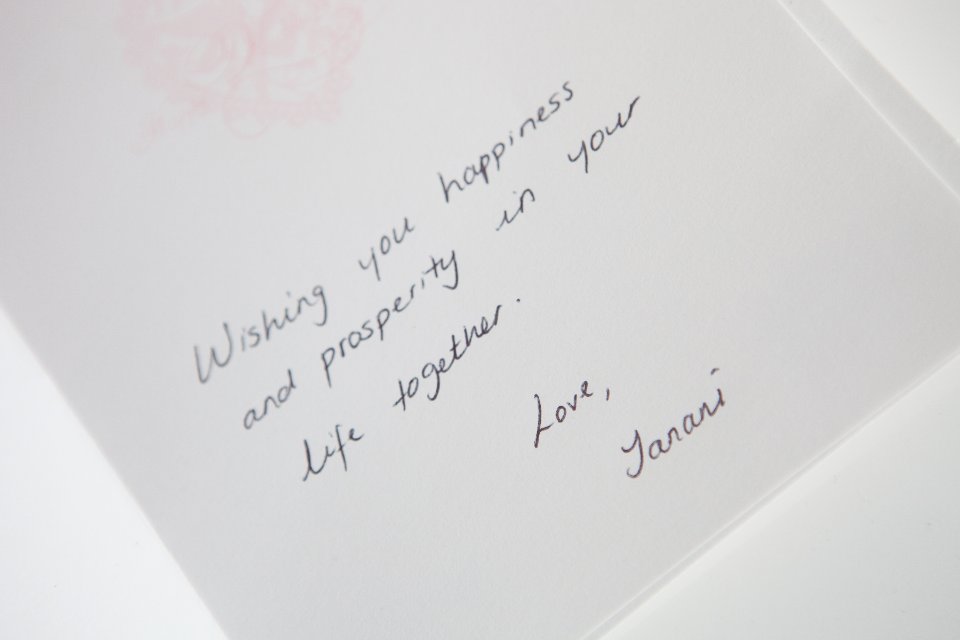 Wishing you happiness
and prosperity in your
life together.
Love,
Janani